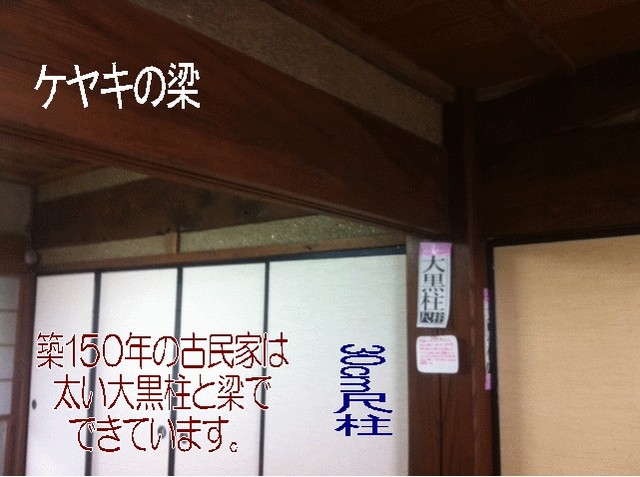 ケヤキの梁
大黒柱
尺柱
築150年の古民家は
太い大黒柱と梁で
できています。
30cm尺柱